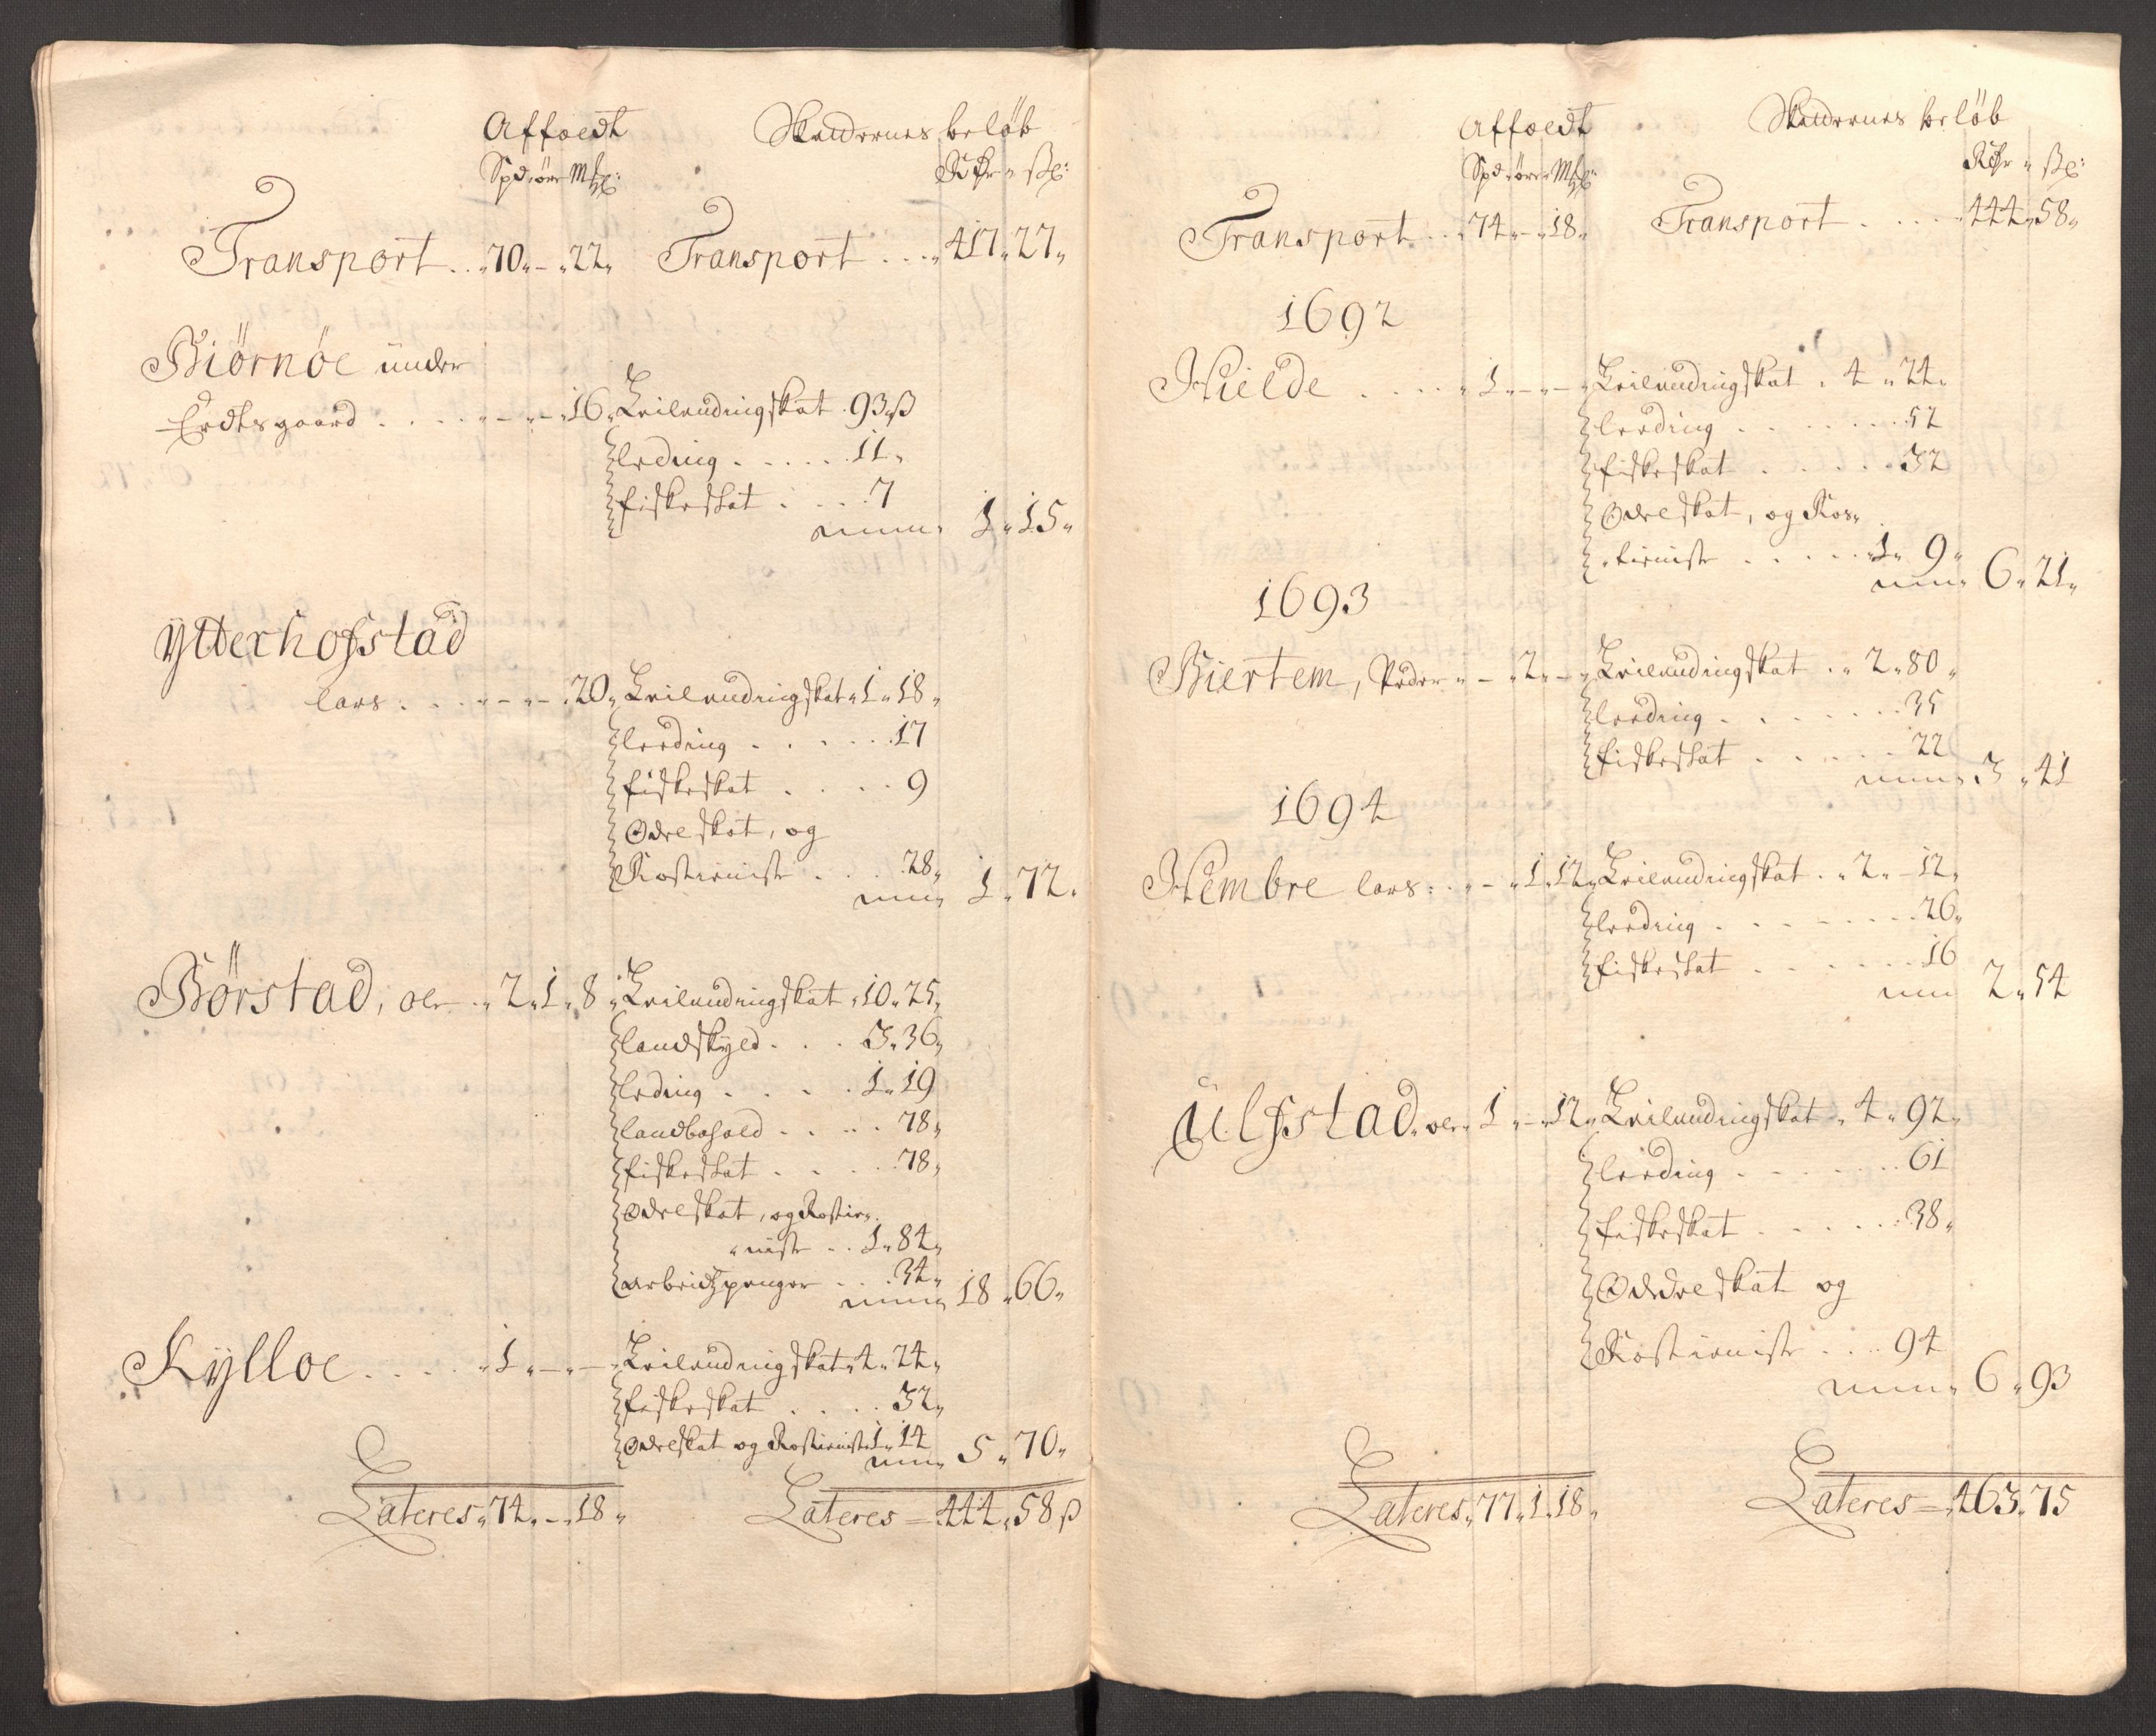 Affoedt Skaudernes beløb
Spd øre Mkl: Rdr ß:
Transport . . 70 " - " 22 " Transport . . . " 417 " 27 "
Biörnöe under
Erdtsgaard . . . . " - " - " 16 " Leilendingskat . 93 ß
leding . . . . . 11 "
fiskeskat . . . 7
1 " 15 "
Ytterhofstad
lars . . . " - " - " 20 " Leilendingskat " 1 " 18 "
leeding . . . . . 17
fiskeskat . . . . 9
Odelskat, og
Rostieniste . . . 28 "
1 " 72 "
Börstad, ole . . 2 " 1 " 8 " Leilendingskat " 10 " 25 "
landskyld . . . 3 " 36 "
leding . . . . 1 " 19
landbohold . . . . 78 "
fiskeskat . . . . 78 "
Odelskat, og Rostie "
" niste . . 1 " 84 "
arbeidtzpenger . . . 34 "
18 " 66 "
Kylloe . . . . " 1 " - " - " Leilendingskat " 4 " 24 "
fiskeskat . . . . 32 "
Odelskat og Rostieniste 1 " 14
5 " 70 "
Lateres " 74 " - " 18 " Lateres = 444 " 58 ß
Affoedt Skaudernes beløb
Spd øre Mkl: Rdr " ß:
Transport . . " 74 " - " 18 " Transport . . . . " 444 " 58 "
1692
Hielde . . . . " 1 " - " - " Leilendingskat " 4 " 24 "
leeding . . . . . . . 52
fiskeskat . . . . . 32
Odelskat, og Ros "
" tieniste . . . . " 1 " 9 "
6 " 21 "
1693
Biertem, Peder " - " 2 " - " Leilendingskat . " 2 " 80 "
leeding . . . . . . 35
fiskeskat . . . . . 22
3 " 41
1694
Hembre lars : . " - " 1 " 12 " Leilendingskat . " 2 " 12 "
leeding . . . . . . . 26 "
fiskeskat . . . . . . 16
2 " 54
Ulfstad " ole " 1 " - " 12 " Leilendingskat " 4 " 92 "
leeding . . . . . . 61
fiskeskat . . . . . . 38 "
Oddelskat og
Rostieniste . . . 94
6 " 93
Lateres " 77 " 1 " 18 " Lateres = " 463 " 75